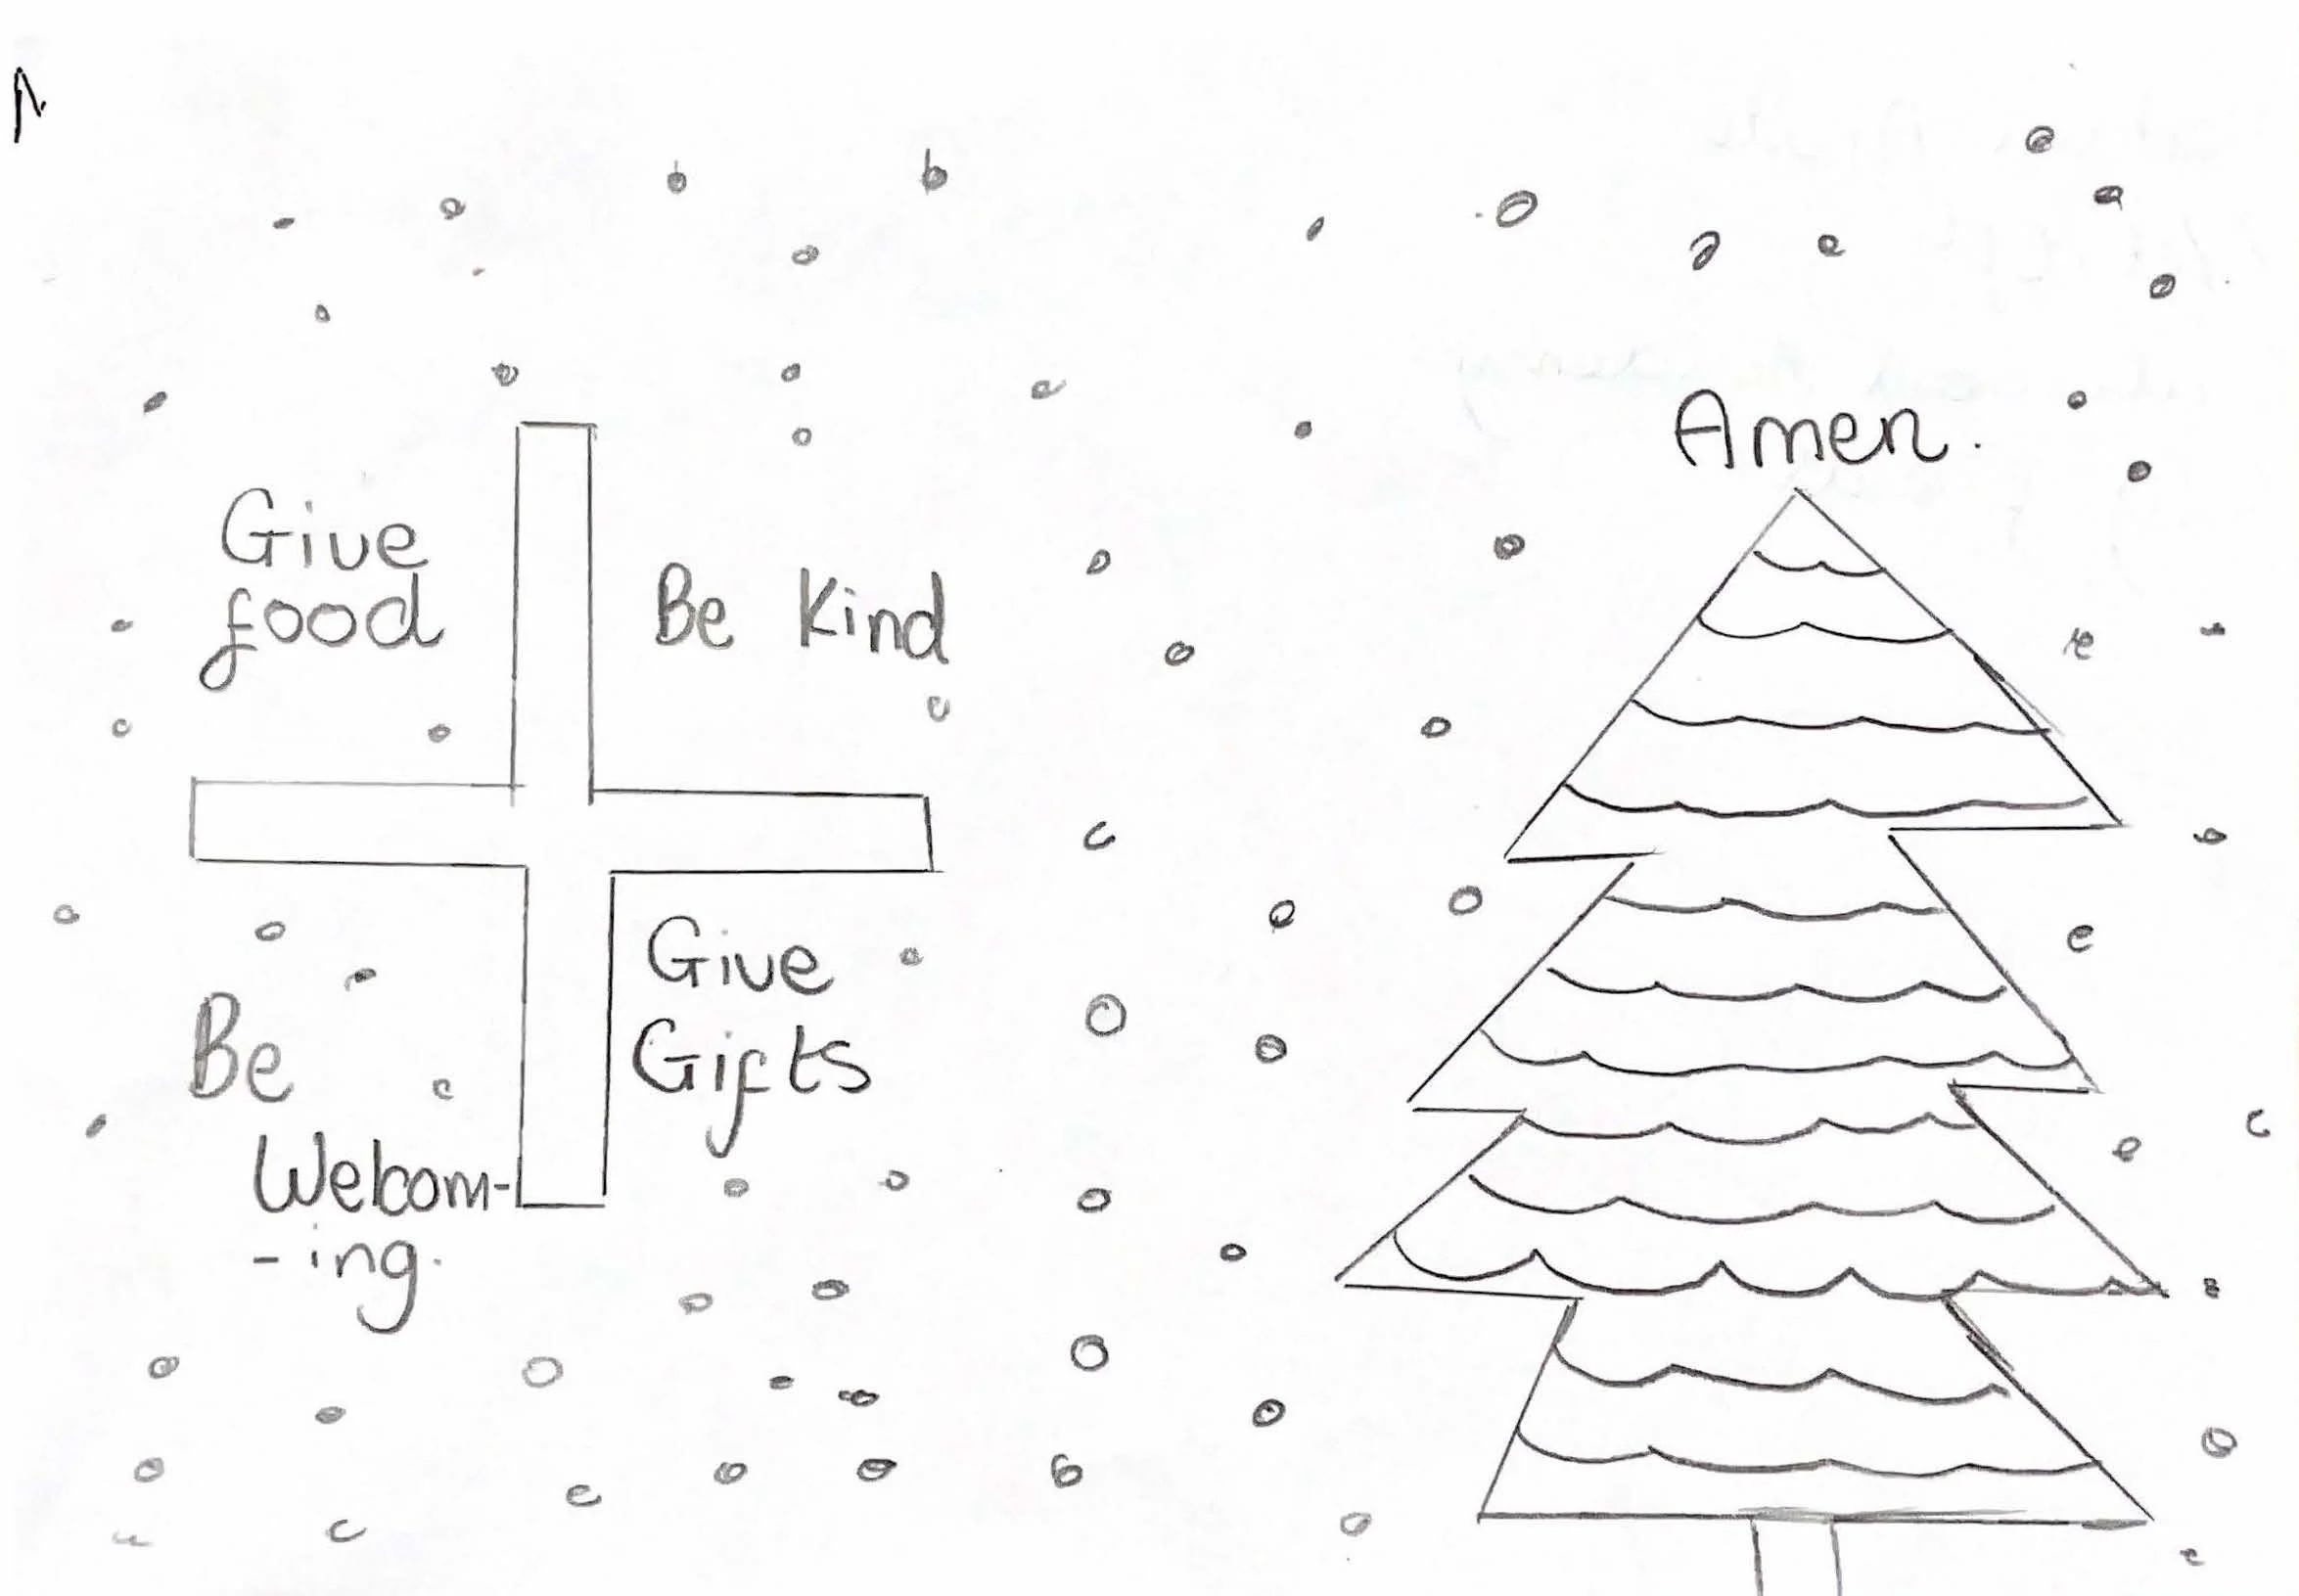 Amen.
Give
food
Be Kind
Be
Welcom-
-ing.
Give
Gifts